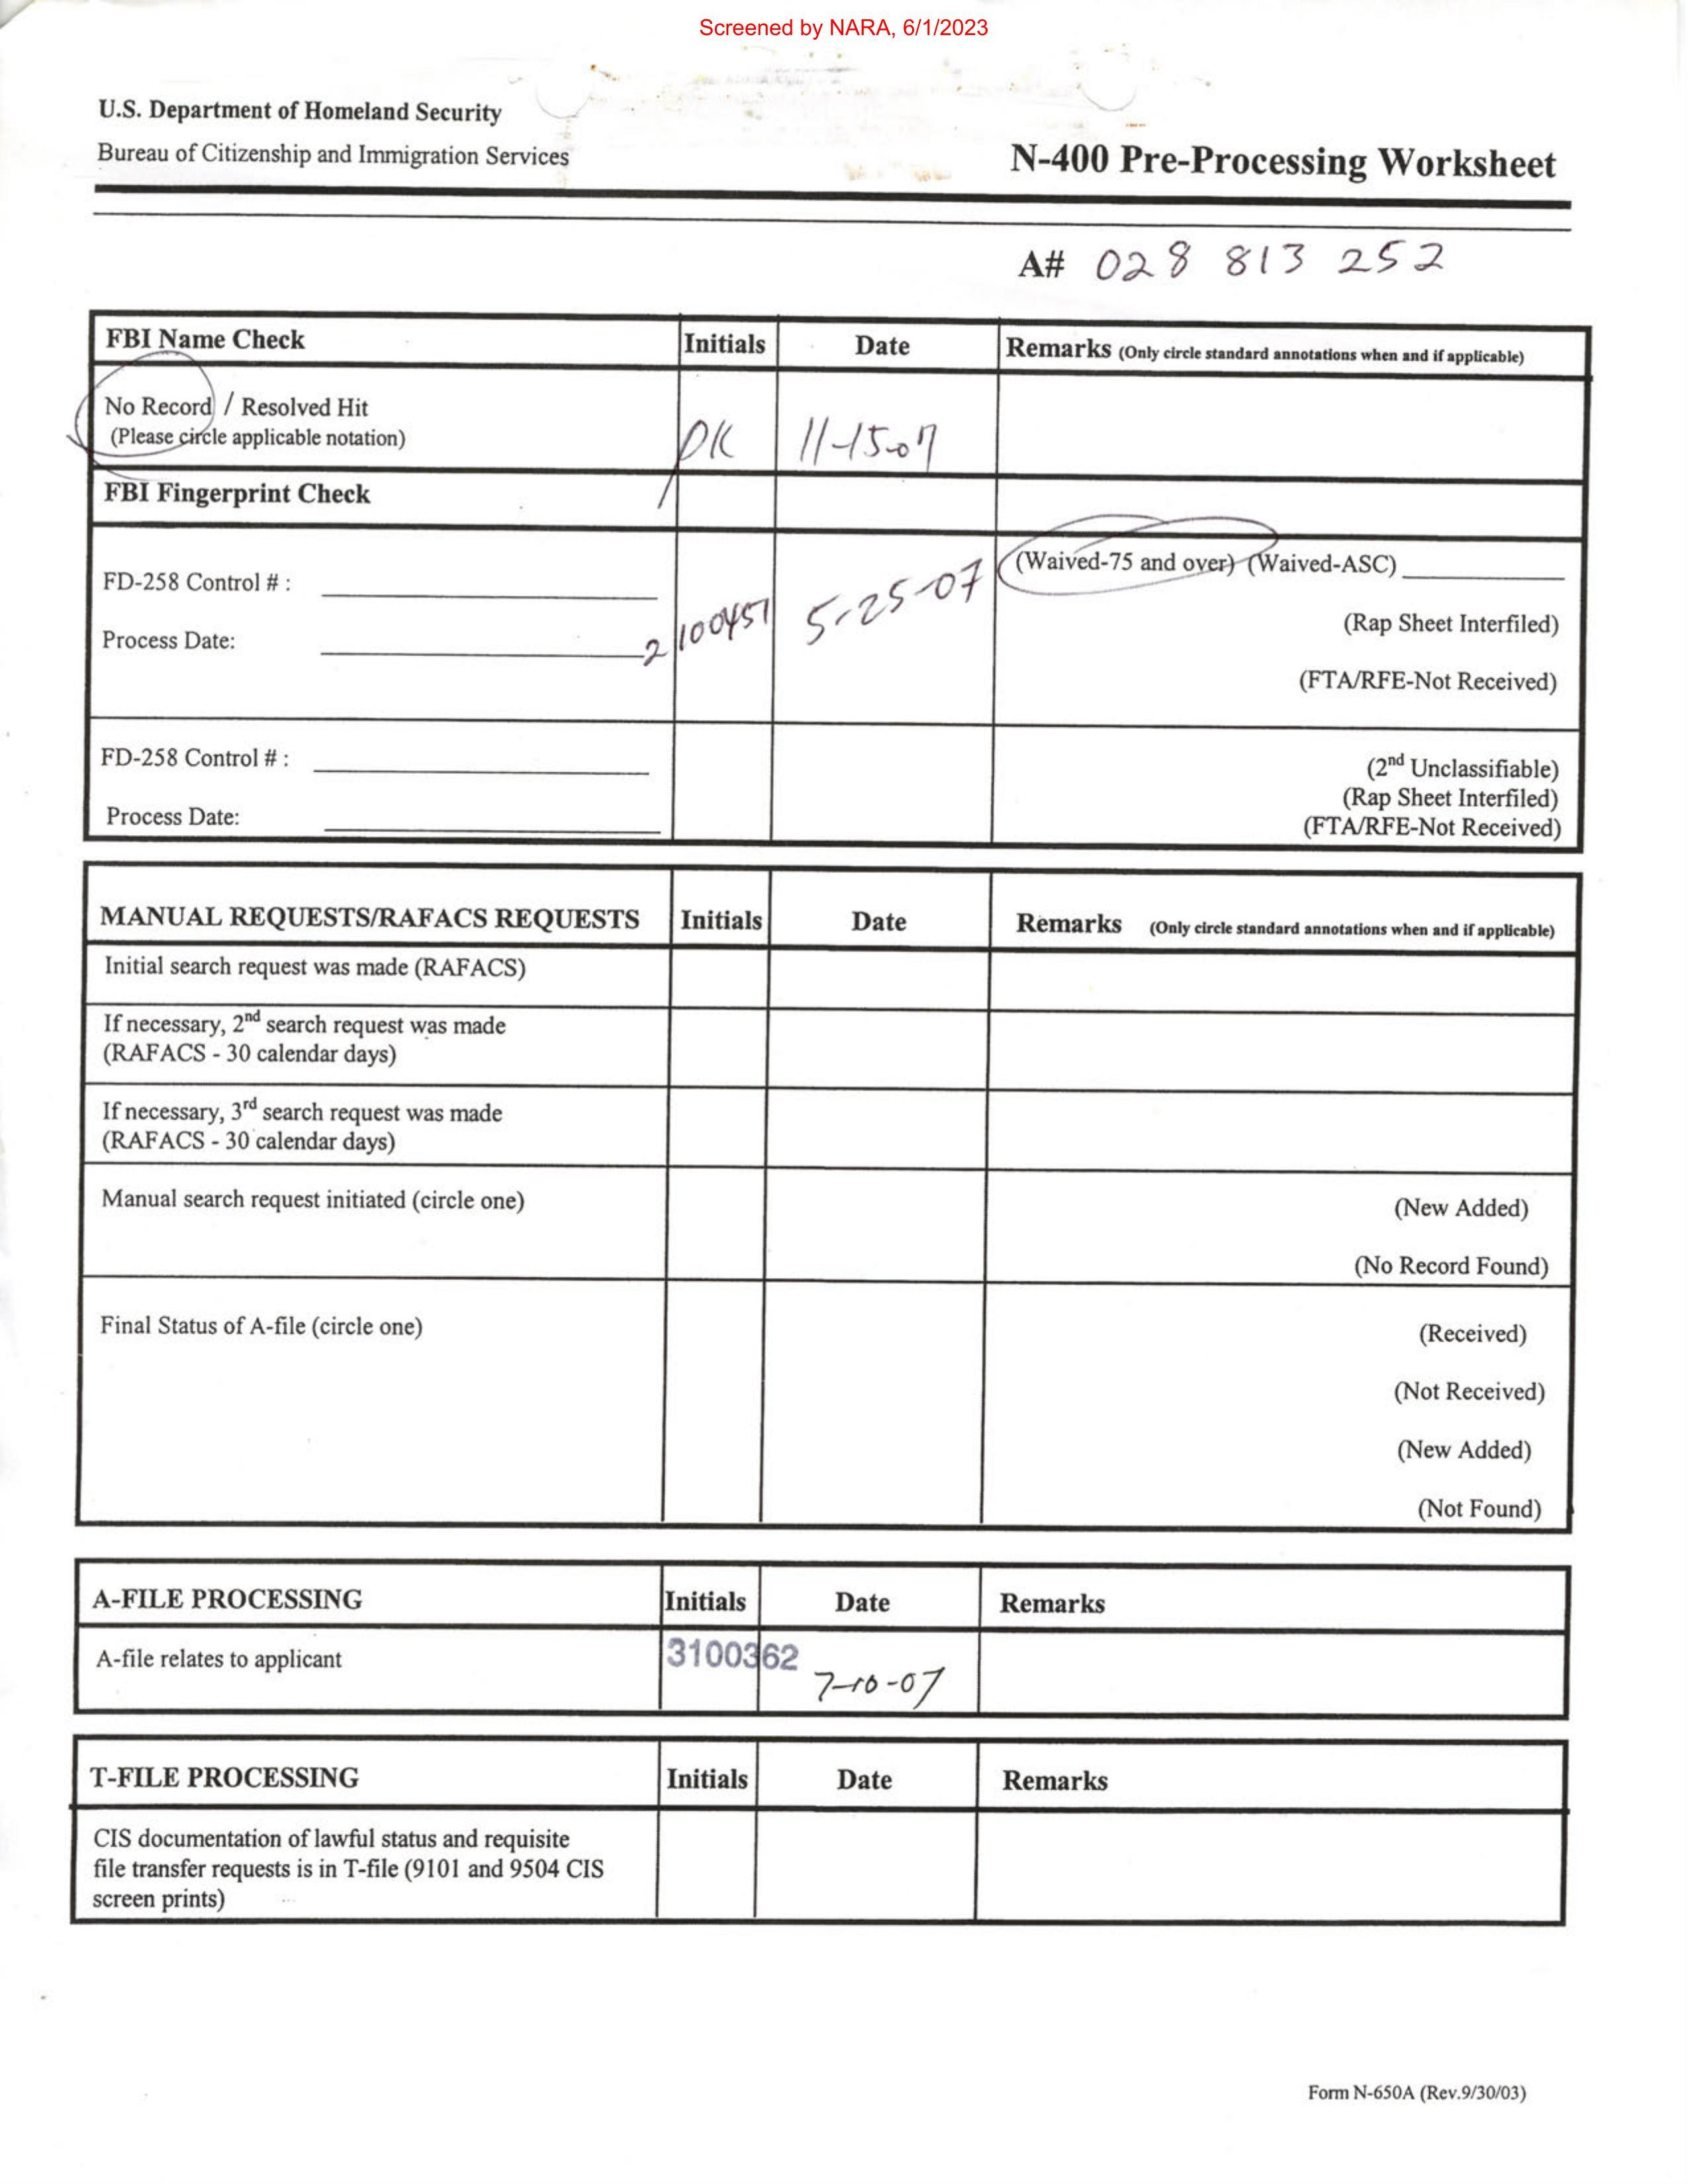 Screened by NARA, 6/1/2023
U.S. Department of Homeland Security
Bureau of Citizenship and Immigration Services
N-400 Pre-Processing Worksheet
A# 028 813 252
FBI Name Check Initials Date Remarks (Only circle standard annotations when and if applicable)
No Record / Resolved Hit
(Please circle applicable notation)
11-15-07
FBI Fingerprint Check
(Waived-75 and over) (Waived-ASC)
FD-258 Control # :
2100451 5-25-07
(Rap Sheet Interfiled)
Process Date:
(FTA/RFE-Not Received)
FD-258 Control # :
(2nd Unclassifiable)
(Rap Sheet Interfiled)
Process Date:
(FTA/RFE-Not Received)
MANUAL REQUESTS/RAFACS REQUESTS Initials Date Remarks (Only circle standard annotations when and if applicable)
Initial search request was made (RAFACS)
If necessary, 2nd search request was made
(RAFACS - 30 calendar days)
If necessary, 3rd search request was made
(RAFACS - 30 calendar days)
Manual search request initiated (circle one) (New Added)
(No Record Found)
Final Status of A-file (circle one) (Received)
(Not Received)
(New Added)
(Not Found)
A-FILE PROCESSING Initials Date Remarks
A-file relates to applicant 3100362 7-10-07
T-FILE PROCESSING Initials Date Remarks
CIS documentation of lawful status and requisite
file transfer requests is in T-file (9101 and 9504 CIS
screen prints)
Form N-650A (Rev.9/30/03)